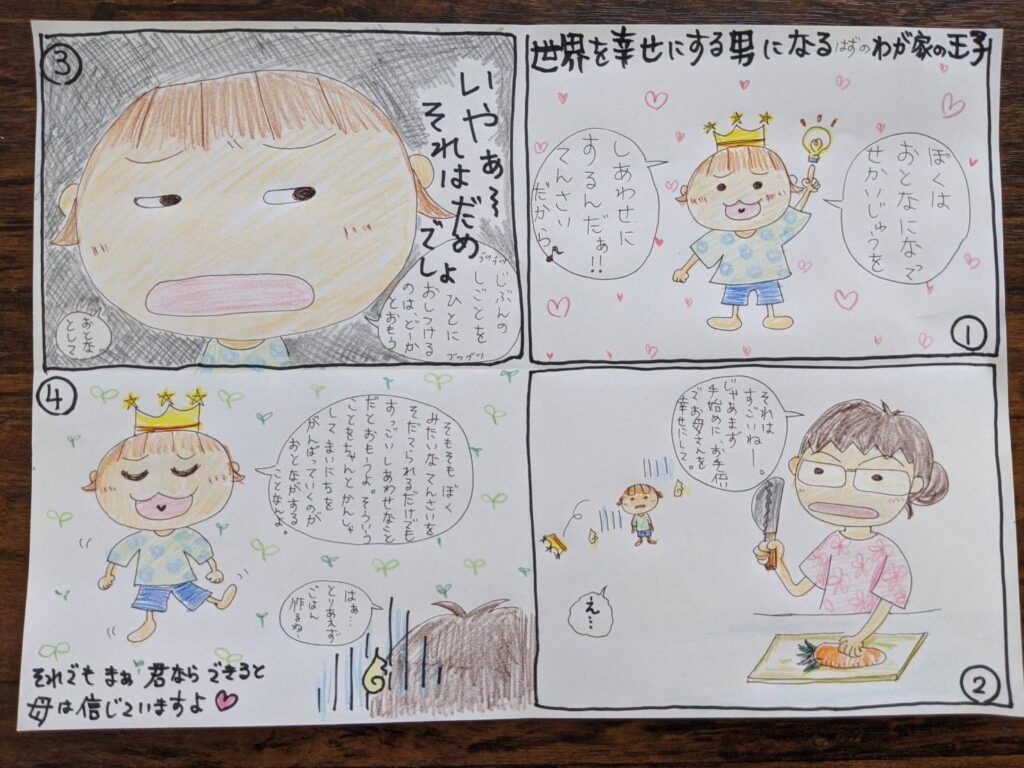 世界を幸せにする男になるはずのわが家の王子
ぼくは
おとなになって
せかいじゅうを
しあわせに
するんだぁ!!
てんさい
だから♪
①
それは
すごいねー。
じゃあまず
手始めに、お手伝い
でお母さんを
幸せにして。
え…
②
③
いやぁ～
それはだめよ
でし
ブツブツ
じぶんの
しごとを
ひとに
おしつける
のは、どーか
とおもう
ブツブツ
おとな
として
④
そもそも、ぼく
みたいな てんさいを
そだてられるだけでも
すっごいしあわせなこと
だとおもうよ。そういう
ことをちゃんとかんしゃ
して まいにちを
がんばっていくのが
おとながする
ことなんよ。
はぁ…
とりあえず
ごはん
作るね…
それでも まぁ 君なら できると
母は信じていますよ♡